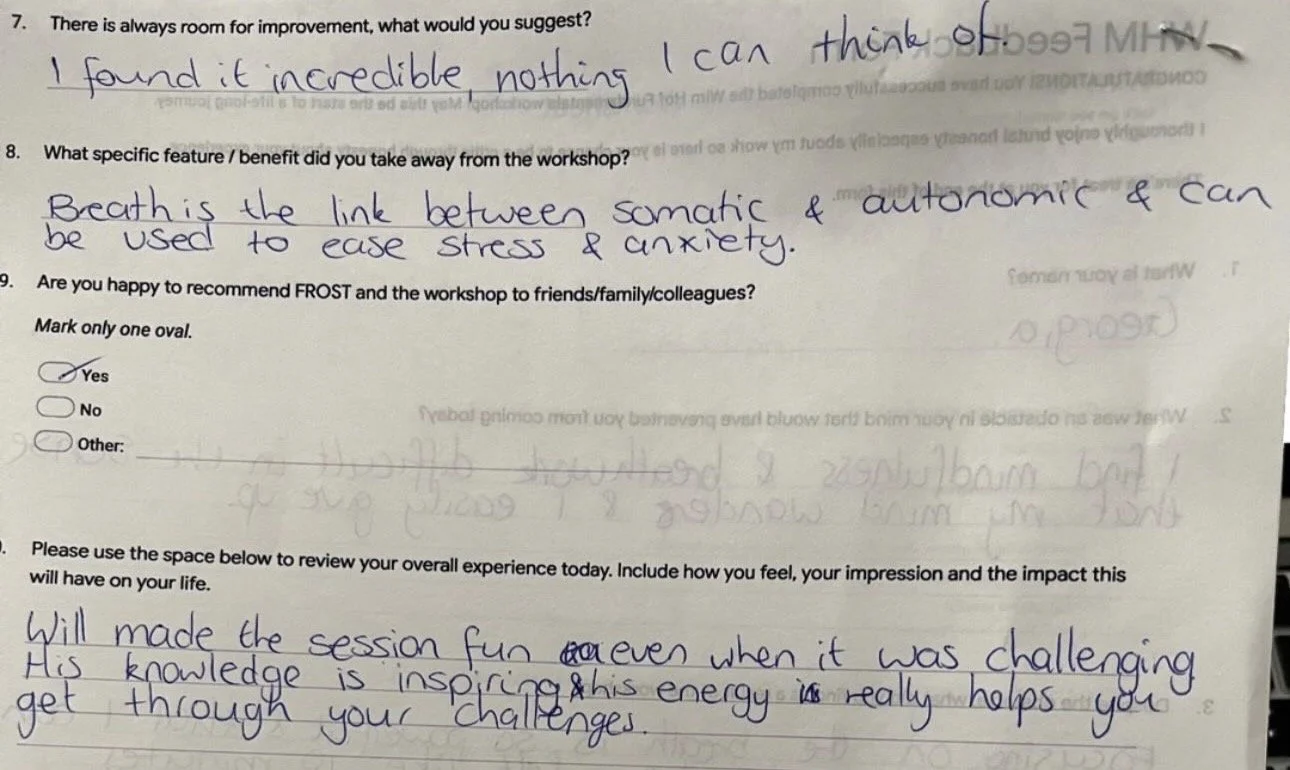 7. There is always room for improvement, what would you suggest?
I found it incredible, nothing I can think of.
8. What specific feature / benefit did you take away from the workshop?
Breath is the link between somatic & autonomic & can
be used to ease stress & anxiety.
9. Are you happy to recommend FROST and the workshop to friends/family/colleagues?
Mark only one oval.
Yes
No
Other:
Please use the space below to review your overall experience today. Include how you feel, your impression and the impact this
will have on your life.
Will made the session fun even when it was challenging
His knowledge is inspiring & his energy really helps you
get through your challenges.